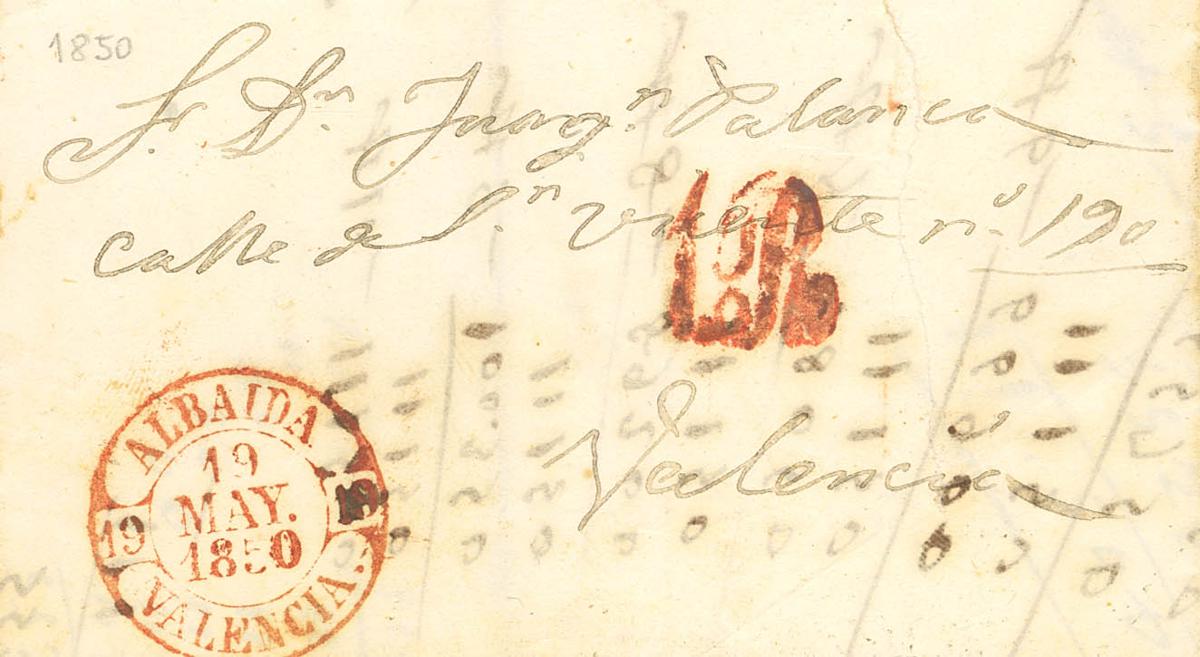 1850
Sr. Dn. Juaqn. Palanca
calle de Sn. Vicente no. 190
Valencia
ALBAIDA
19
MAY.
1850
19
19
VALENCIA.